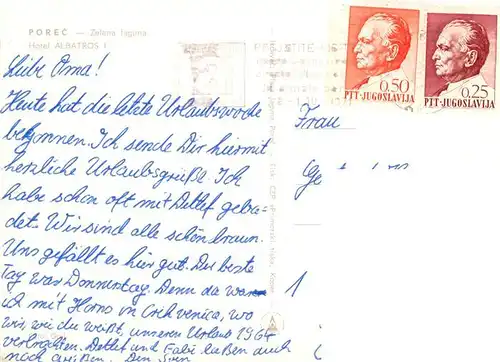 POREČ — Zelena laguna
Hotel ALBATROS I
Liebe Oma!
Heute hat die letzte Urlaubswoche
begonnen. Ich sende Dir hiermit
herzliche Urlaubsgrüße. Ich
habe schon oft mit Detlef geba-
det. Wir sind alle schön braun.
Uns gefällt es hier gut. Der beste
Tag war Donnerstag. Denn da waren
ich mit Horns in Crikvenica, wo
wir, wie du weißt, unseren Urlaub 1964
verbrachten. Detlef und Fabi laßen auch
noch grüßen. Dein Sven
0.50
PTT-JUGOSLAVIJA
0.25
PTT-JUGOSLAVIJA
Frau
1